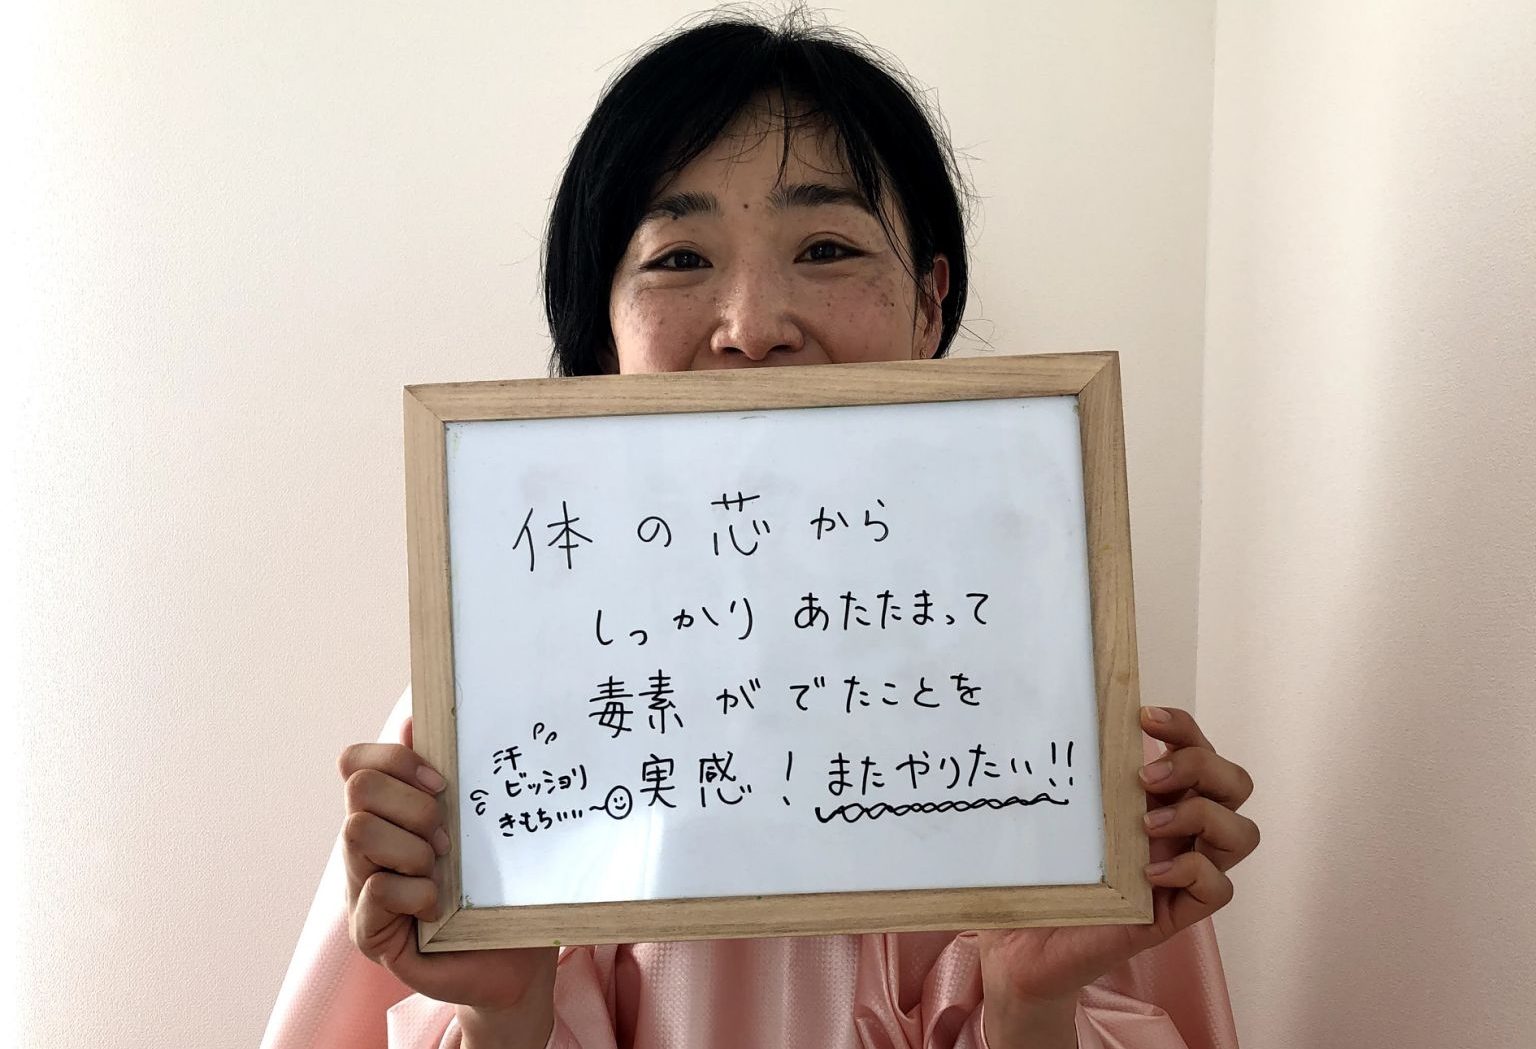 体の芯から
しっかりあたたまって
毒素がでたことを
実感！またやりたい!!
汗
ビッショリ
きもちいい〜